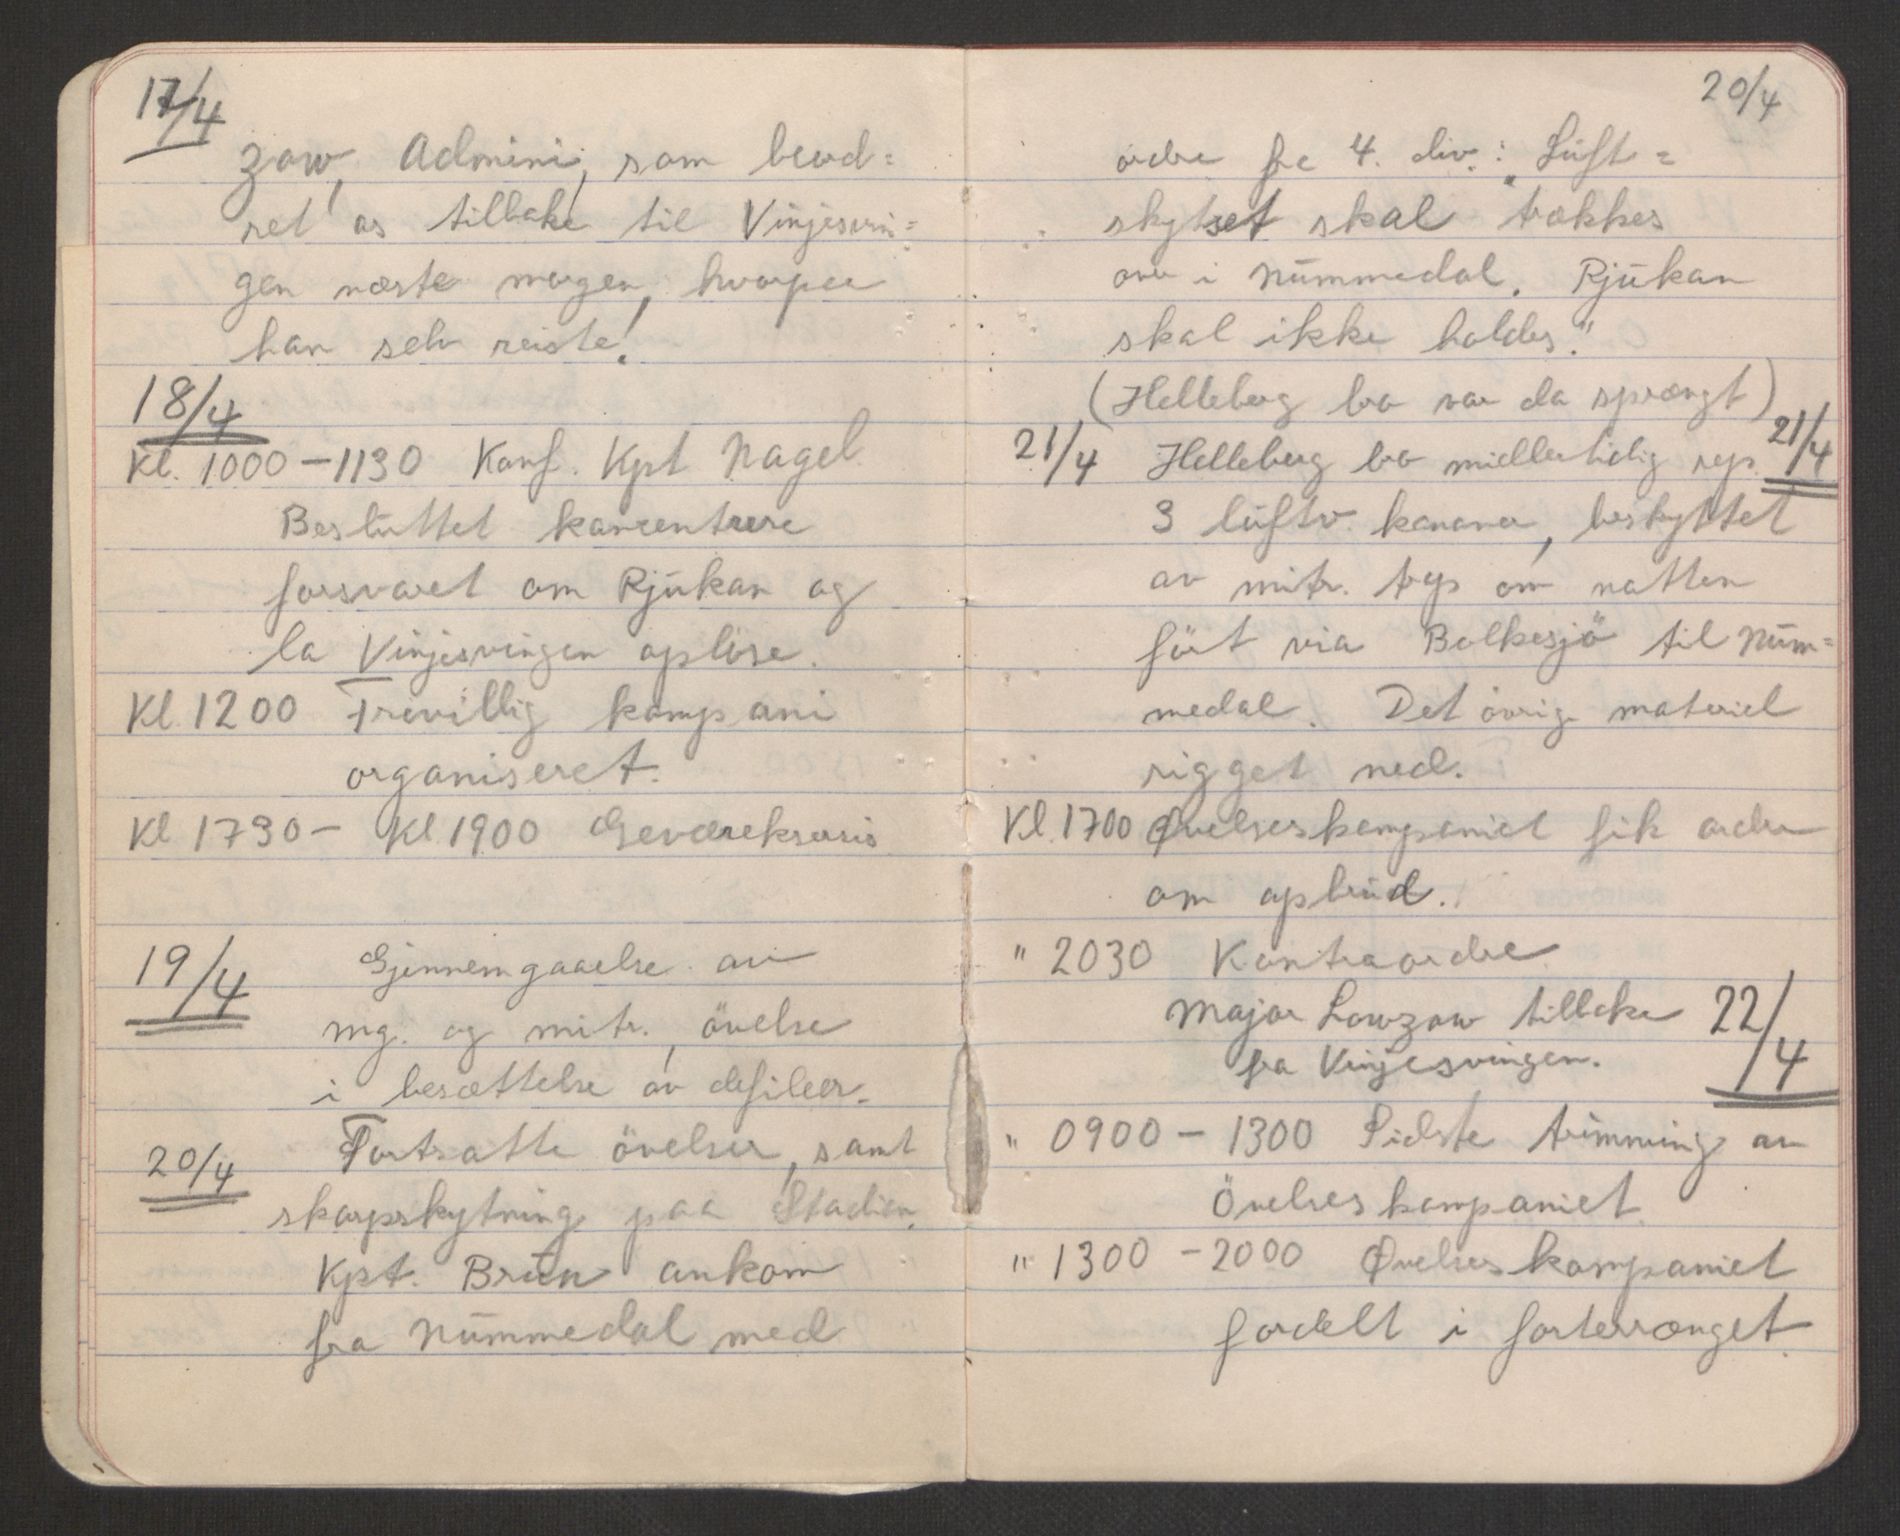 17/4
zow, Admini, som beord=
ret os tilbake til Vinjesvin=
gen næste morgen, hvorpaa
han selv reiste!
18/4
Kl. 1000 – 1130 Konf. Kpt Nagel.
Besluttet koncentrere
forsvaret om Rjukan og
la Vinjesvingen opløse.
Kl. 1200 Frevillig kompani
organiseret.
Kl 1730 – Kl. 1900 Geværeksersis
19/4 Gjennemgaaelse av
mg. og mitr., övelse
i besættelse av defileer.
20/4 Fortsatte övelser, samt
skarpskytning paa Stadion.
Kpt. Brun ankom
fra Nummedal med
20/4
ordre fra 4. div.: "Luft=
skytset skal trækkes
over i Nummedal. Rjukan
skal ikke holdes."
(Helleberg bro var da sprængt)
21/4 Helleberg bro midlertidig rep. 21/4
3 luftv. kanoner, beskyttet
av mitr. trop om natten
fört via Bolkesjö til Num=
medal. Det övrige materiel
rigget ned.
Kl. 1700 Øvelseskompaniet fik ordre
om opbrud.
" 2030 Kontraordre
Major Lowzow tilbake 22/4
fra Vinjesvingen.
" 0900 – 1300 Sidste trimming av
Övelseskompaniet
" 1300 – 2000 Øvelseskompaniet
fordelt i forterrænget.